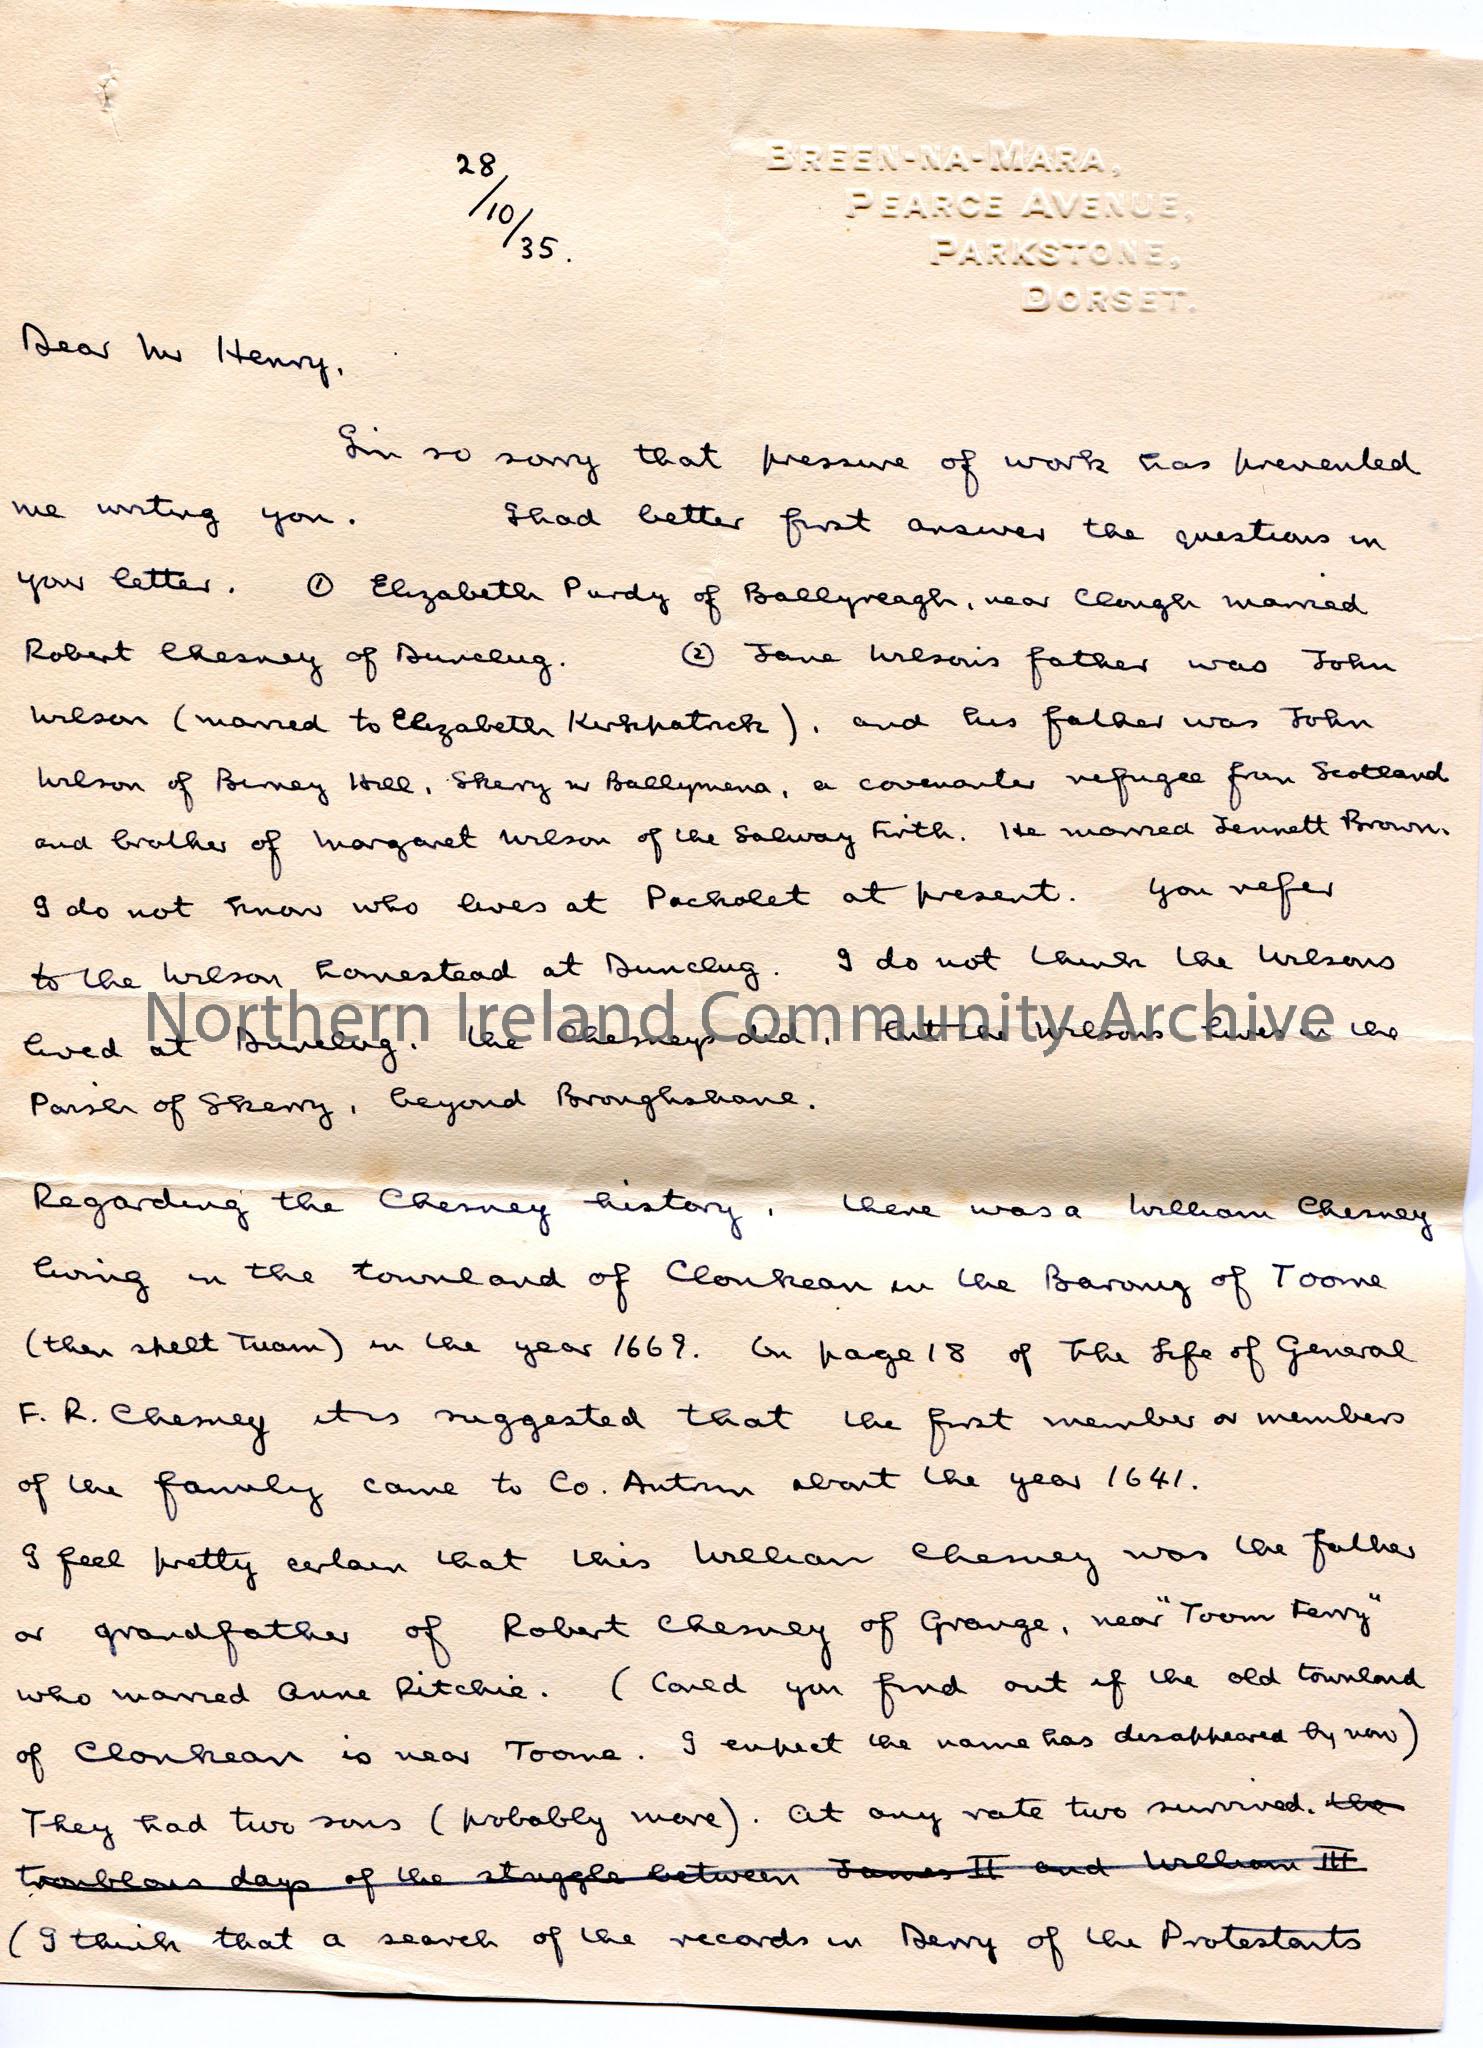 28/10/35.
BREEN-NA-MARA,
PEARCE AVENUE,
PARKSTONE,
DORSET.
Dear Mr Henry,
I'm so sorry that pressure of work has prevented
me writing you. I had better first answer the questions in
your letter. ① Elizabeth Purdy of Ballyreagh, near Clough married
Robert Chesney of Dunclug. ② Jane Wilson's father was John
Wilson (married to Elizabeth Kirkpatrick), and his father was John
Wilson of Birney Hill, Skerry nr Ballymena, a covenanter refugee from Scotland
and brother of Margaret Wilson of the Solway Firth. He married Jennett Brown.
I do not know who lives at Pacholet at present. You refer
to the Wilson homestead at Dunclug. I do not think the Wilsons
lived at Dunclug. The Chesneys did, but the Wilsons lived in the
Parish of Skerry, beyond Broughshane.
Northern Ireland Community Archive
Regarding the Chesney history, there was a William Chesney
living in the townland of Clonkean in the Barony of Toome
(then spelt Tuam) in the year 1669. On page 18 of The Life of General
F. R. Chesney it is suggested that the first member or members
of the family came to Co. Antrim about the year 1641.
I feel pretty certain that this William Chesney was the father
or grandfather of Robert Chesney of Grange, near "Toom Ferry"
who married Anne Ritchie. (Could you find out if the old townland
of Clonkean is near Toome. I expect the name has disappeared by now)
They had two sons (probably more). At any rate two survived. the
troublous days of the struggle between James II and William III
(I think that a search of the records in Derry of the Protestants